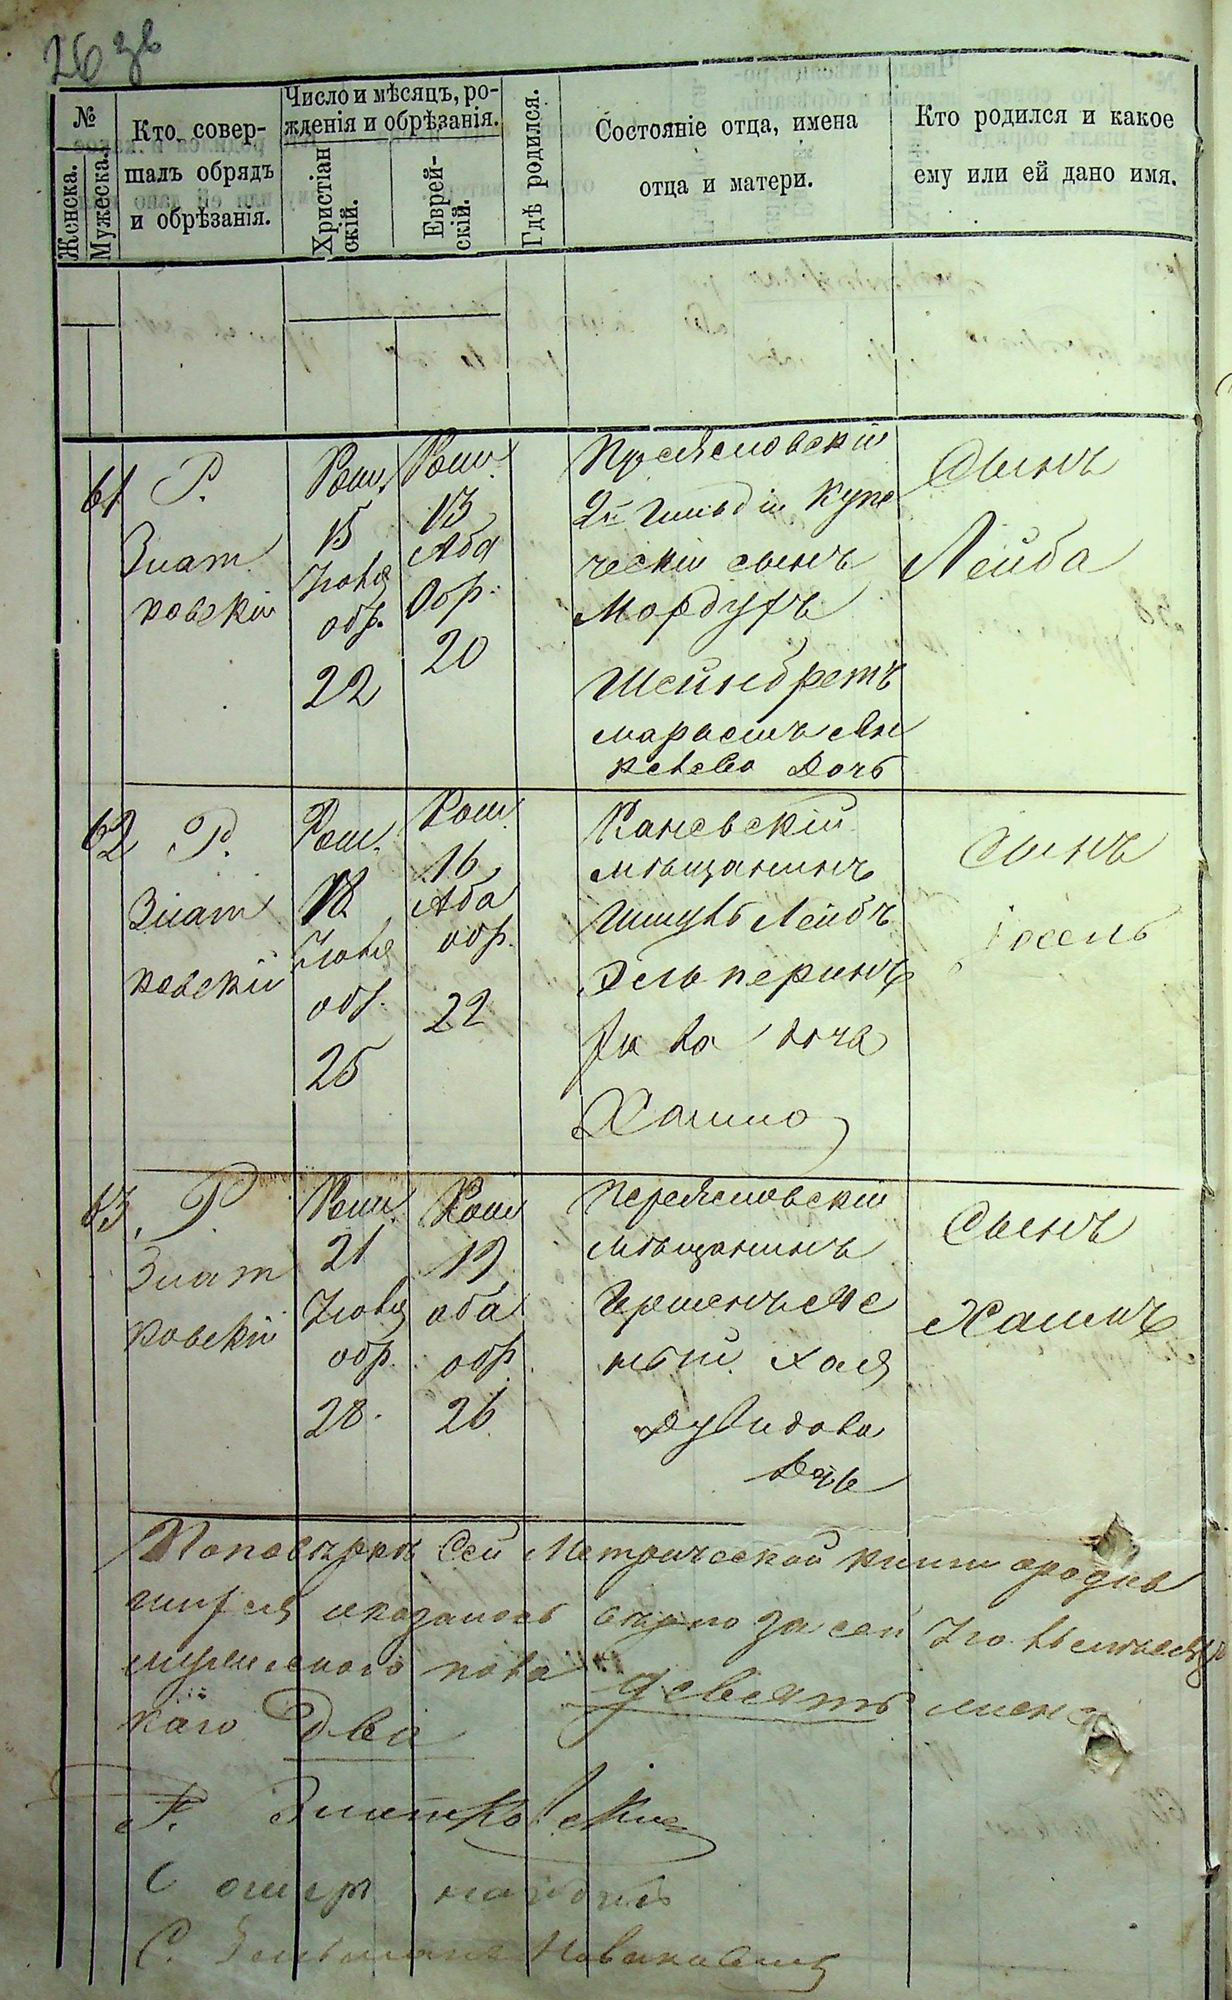 26 зв
№
Женска.
Мужеска.
Кто совер-
шалъ обрядъ
и обрѣзанія.
Число и мѣсяцъ, ро-
жденія и обрѣзанія.
Христіан
скій.
Еврей-
скій.
Гдѣ родился.
Состояніе отца, имена
отца и матери.
Кто родился и какое
ему или ей дано имя.
61
Р.
Злат
ковскій
Рош.
15
Іюля
обр.
22
Рош.
13
Аба
Обр.
20
2й гильдіи купе
ческій сынъ
Мордухъ
Шейнбретъ
дочь
Сынъ
Лейба
62
Р.
Злат
ковскій
Рош.
18
Іюля
обр.
25
Рош.
16
Аба
обр.
22
Каневскій
мѣщанинъ
Лейбъ
Эльперинъ
дочь
Сынъ
Іосель
63
Р.
Злат
ковскій
Рош.
21
Іюля
обр.
28.
Рош
19
аба
обр.
26
Переяславскій
мѣщанинъ
Хая
Дувидова
Дочь
Сынъ
Хаимъ
По повѣркѣ Сей Метрической книги о родив
шихся оказалось вѣрно за сей Іюль мѣсяцъ
мужескаго пола девять женс
каго два
Р. Златковскій